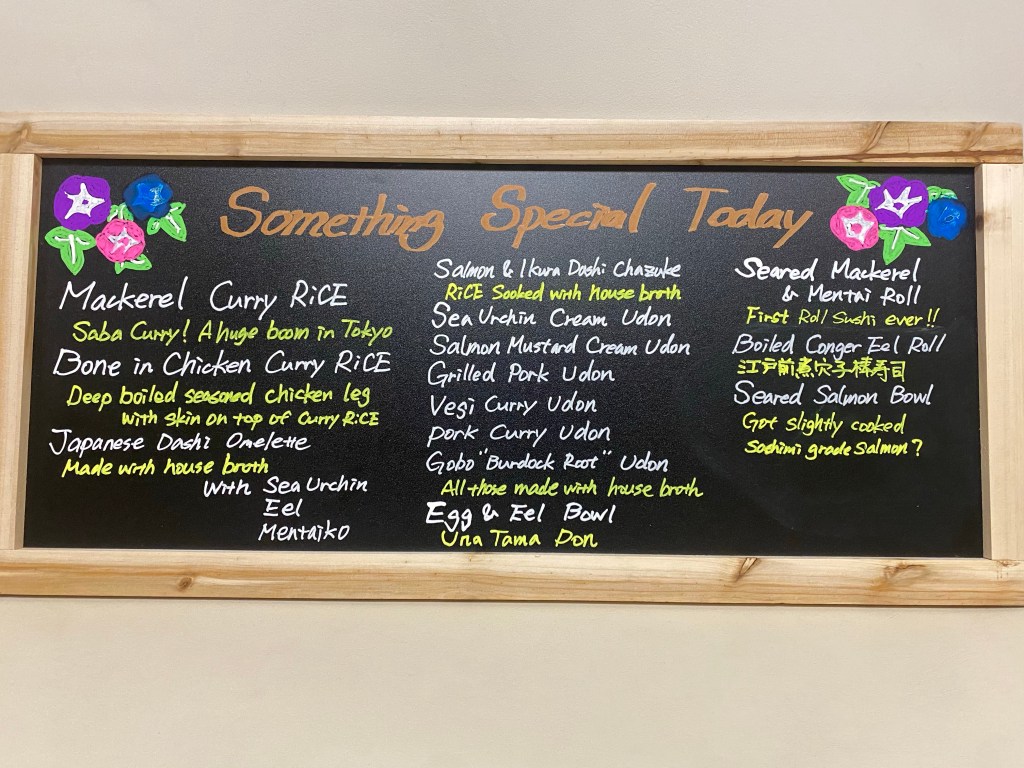 Something Special Today
Mackerel Curry RiCE
Saba Curry! A huge boom in Tokyo
Bone in Chicken Curry RiCE
Deep boiled seasoned chicken leg
with skin on top of Curry RiCE
Japanese Dashi Omelette
Made with house broth
with Sea Urchin
Eel
Mentaiko
Salmon & Ikura Dashi Chazuke
RiCE Sooked with house broth
Sea Urchin Cream Udon
Salmon Mustard Cream Udon
Grilled Pork Udon
Vegi Curry Udon
pork Curry Udon
Gobo "Burdock Root" Udon
All those made with house broth
Egg & Eel Bowl
Una Tama Don
Seared Mackerel
& Mentai Roll
First Roll Sushi ever!!
Boiled Conger Eel Roll
江戸前煮穴子棒寿司
Seared Salmon Bowl
Got slightly cooked
Sashimi grade Salmon?